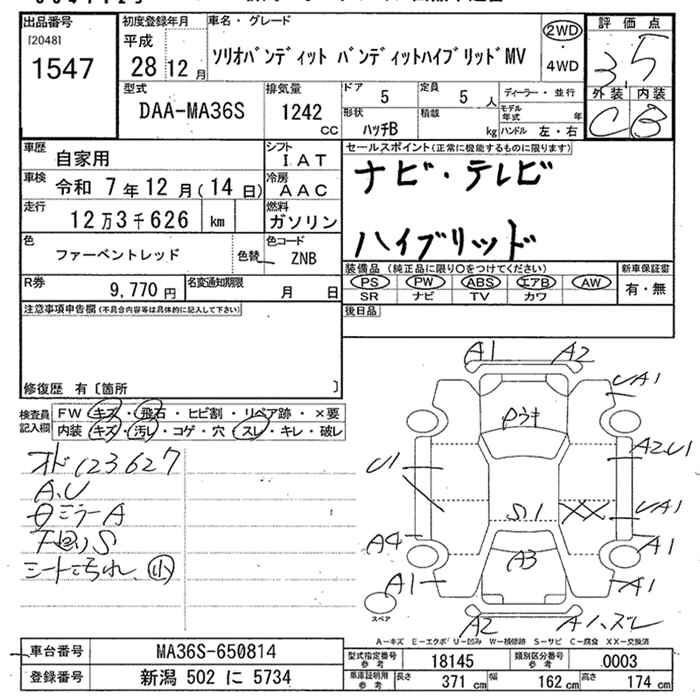 出品番号
[2048]
1547
初度登録年月
平成
28 12 月
車名・グレード
ソリオバンディット バンディットハイブリッドMV
2WD
・
4WD
評価点
3.5
外装 内装
C B
型式
DAA-MA36S
排気量
1242 cc
ドア 5
定員 5 人
ディーラー・並行
形状 ハッチB
積載 kg
モデル年式 年
ハンドル 左・右
車歴
自家用
シフト
IAT
車検 令和 7年12月(14日)
冷房
AAC
走行 12万3千626 km
燃料
ガソリン
色
ファーベントレッド
色替
色コード
ZNB
R券 9,770 円
名変通知期限 月 日
セールスポイント(正常に機能するものに限ります)
ナビ・テレビ
ハイブリッド
装備品 (純正品に限り○をつけてください)
PS PW ABS エアB AW
SR ナビ TV カワ
新車保証書
有・無
後日品
注意事項申告欄(不具合内容等は具体的に記入して下さい)
修復歴 有〔箇所 〕
検査員記入欄
FW キズ・飛石・ヒビ割・リペア跡・×要
内装 キズ・汚レ・コゲ・穴・スレ・キレ・破レ
オド123627
A.U
ミラーA
下回りS
シートこすれ 小
A1 A2
UA1
U1
A2U1
S1
XX
UA1
A4
A3
A1
A1
A1
A2
Aハズレ
スペア
A-キズ E-エクボ U-凹み W-補修跡 S-サビ C-腐食 XX-交換済
車台番号 MA36S-650814
登録番号 新潟 502 に 5734
型式指定番号 参考 18145
類別区分番号 参考 0003
車庫証明用 参考 長さ 371 cm 幅 162 cm 高さ 174 cm